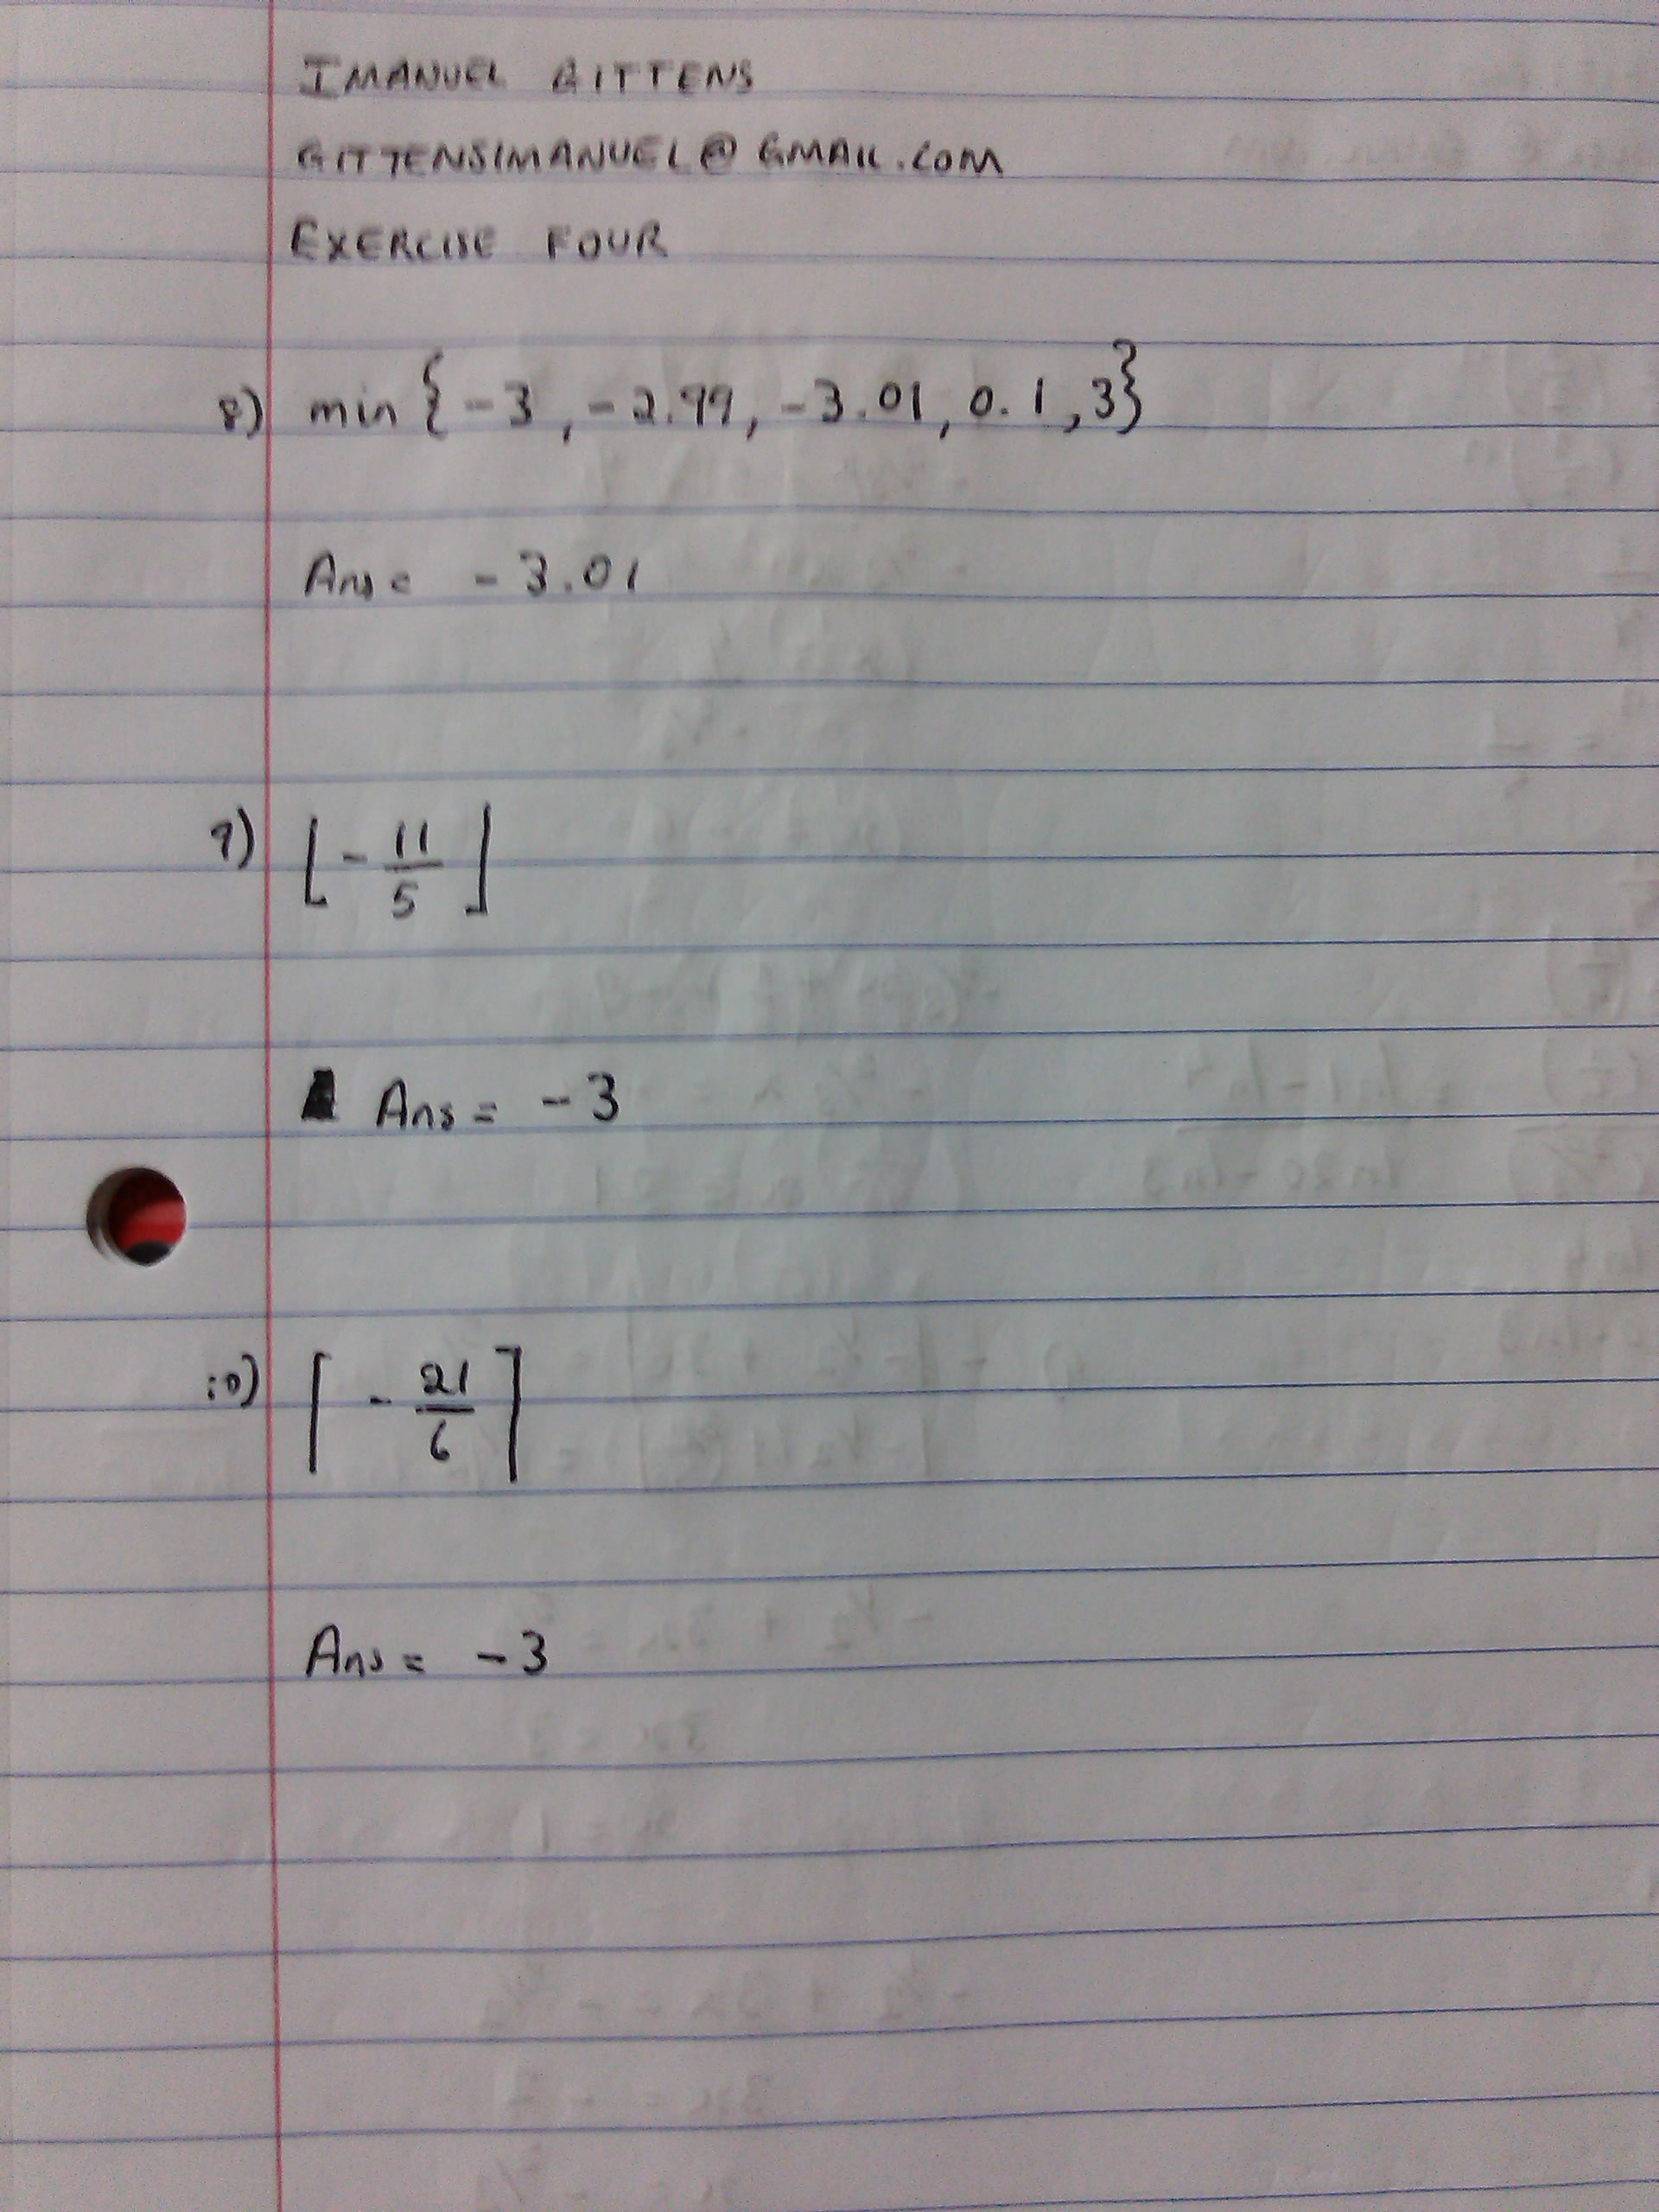 IMANUEL GITTENS
GITTENSIMANUEL@GMAIL.COM
EXERCISE FOUR
8) min {-3, -2.99, -3.01, 0.1, 3}
Ans = -3.01
9) ⌊-11/5⌋
Ans = -3
10) ⌈-21/6⌉
Ans = -3